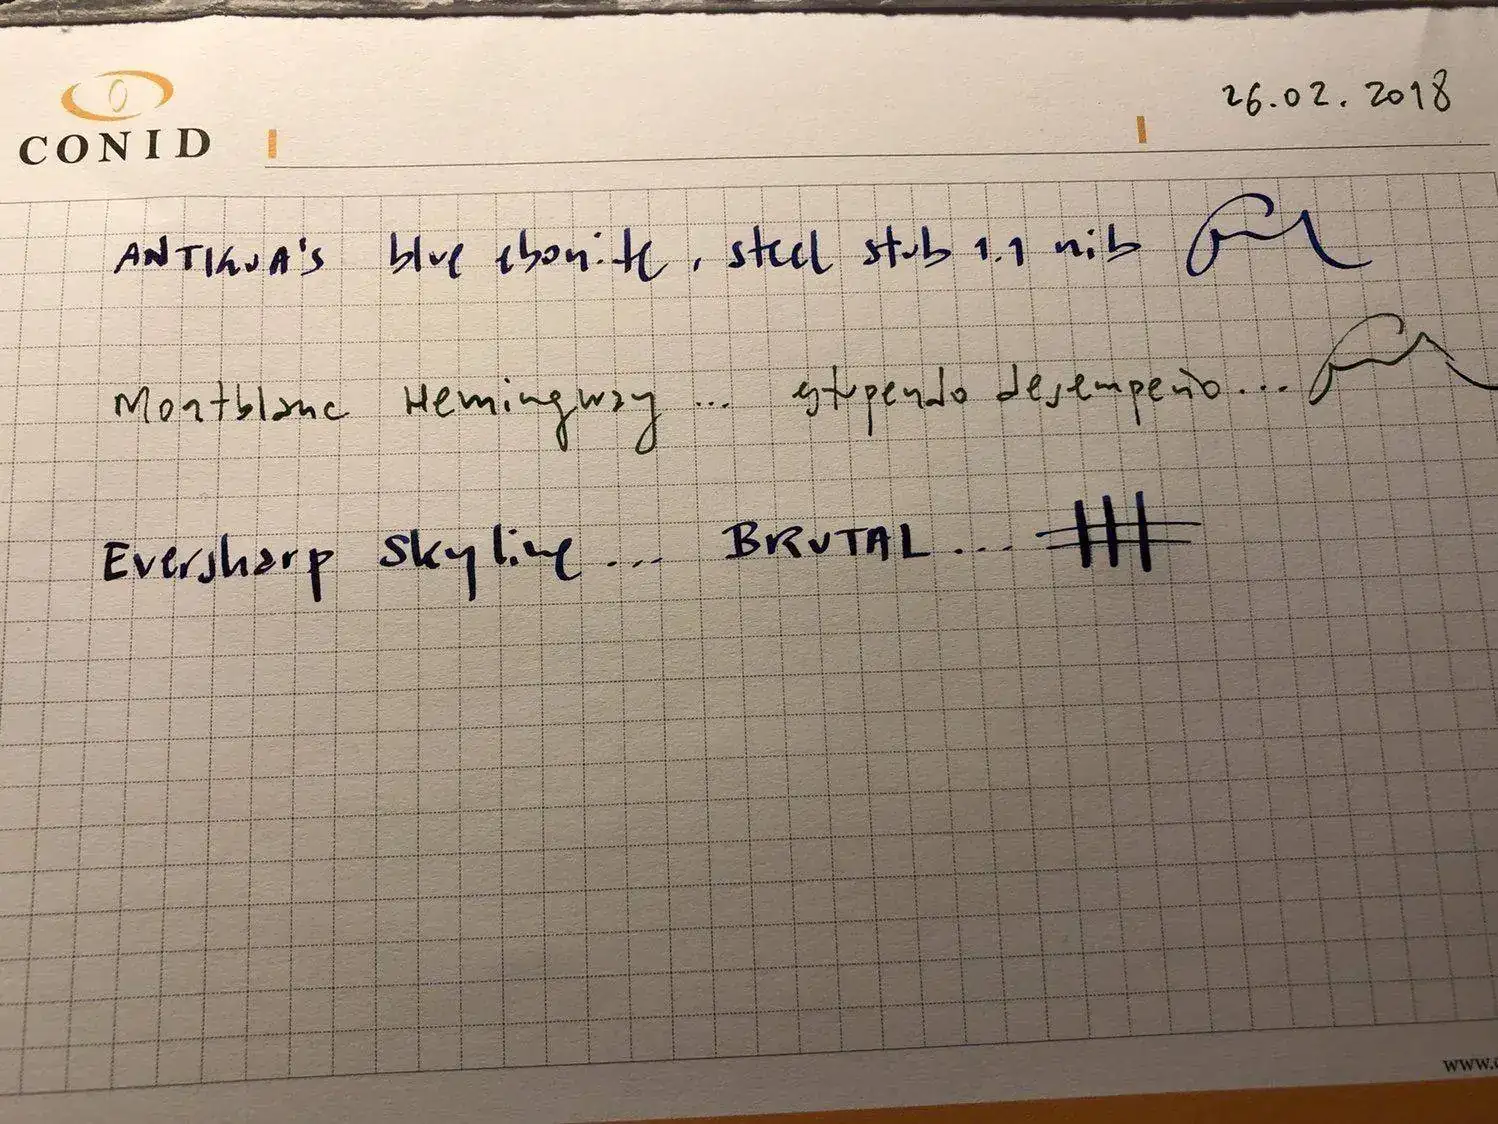 CONID
26.02.2018
ANTIKUA's blue ebonite, steel stub 1.1 nib
Montblanc Hemingway ... estupendo desempeño...
Eversharp Skyline... BRUTAL...
www.